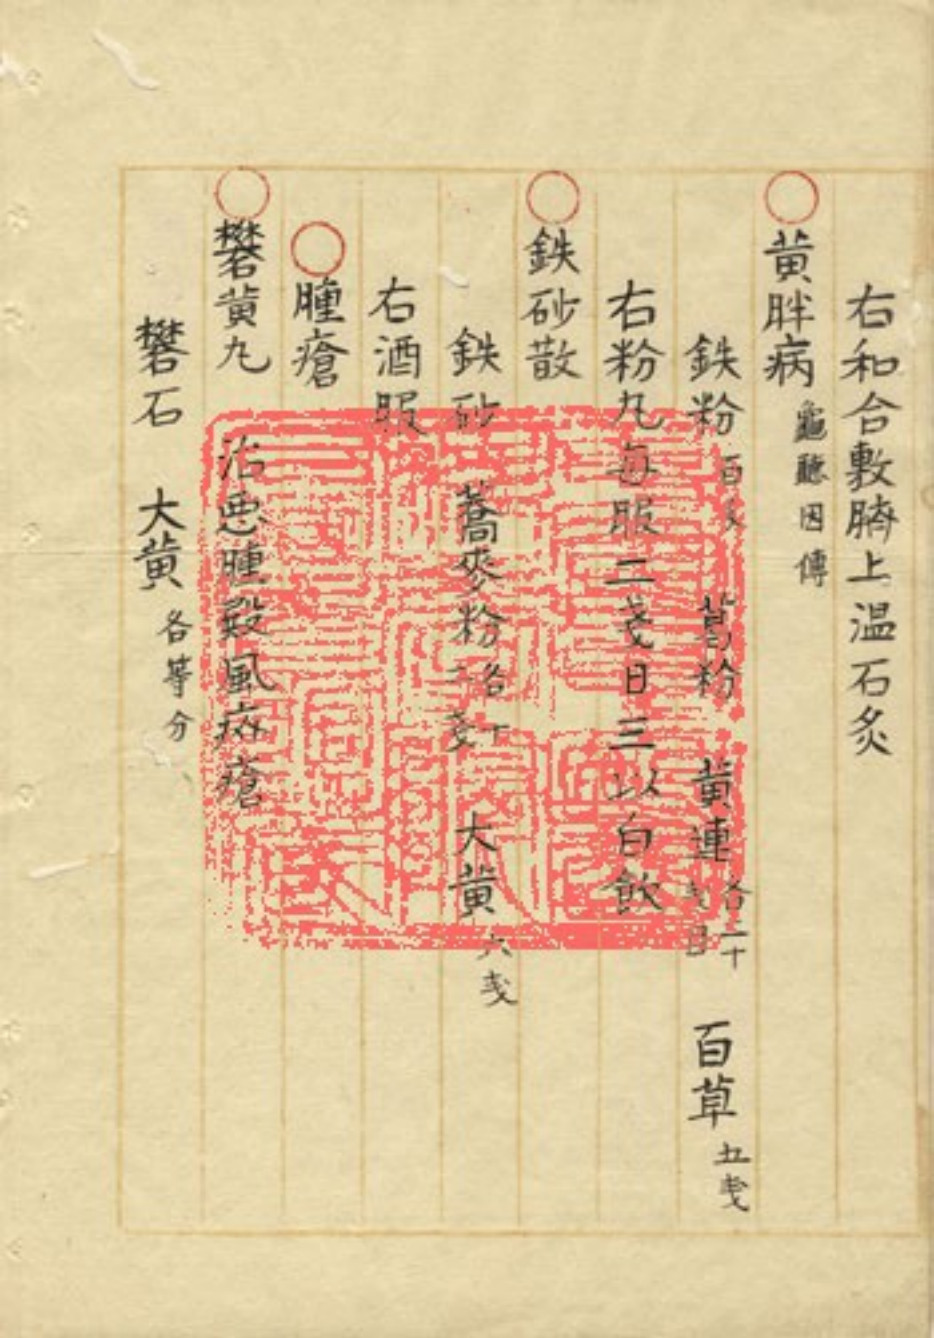 右和合敷臍上温石炙
〇黄胖病 龜聽因傳
鉄粉 百 葛粉 黄連 各二十 百草 五戔
右粉丸每服二戔日三以白飲
〇鉄砂散
鉄砂 蕎麥粉 各十二戔 大黄 六戔
右酒服
〇腫瘡
〇礬黄丸 治悪腫毀風疥瘡
礬石 大黄 各等分